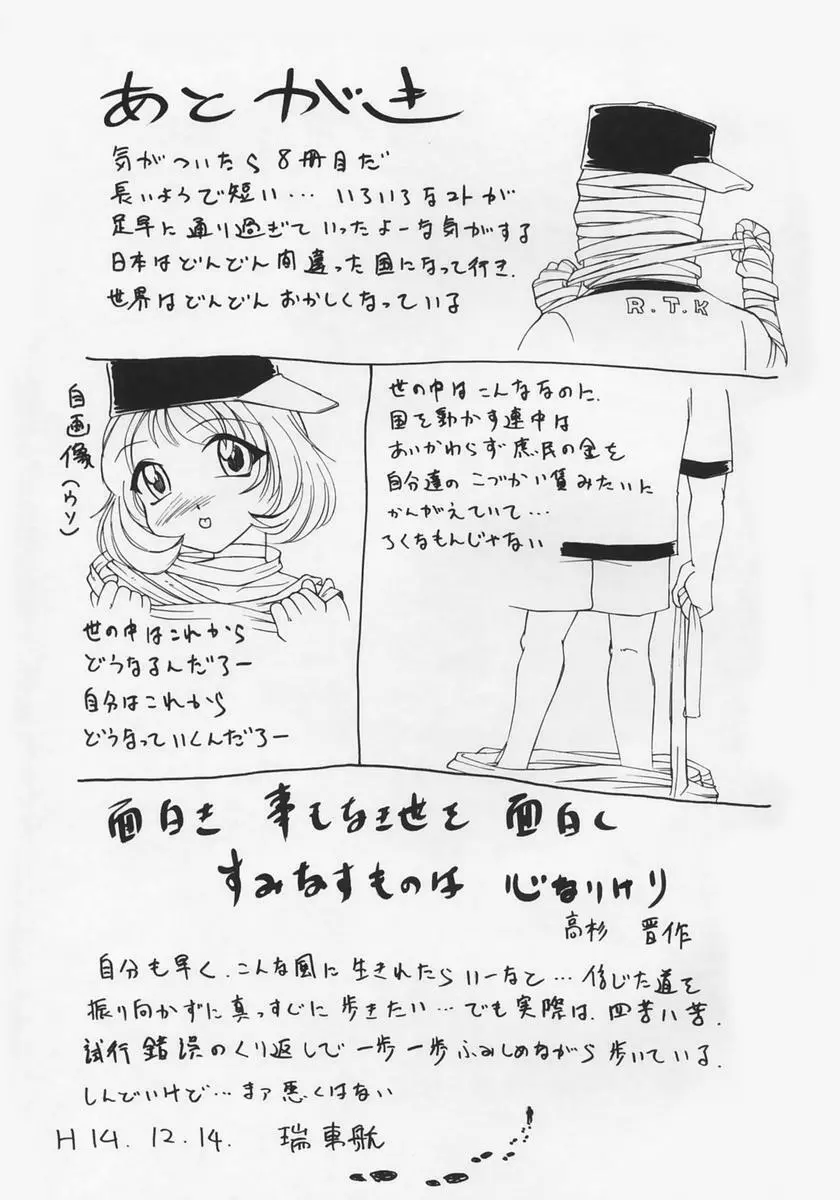 あとがき
気がついたら8冊目だ
長いようで短い…いろいろなコトが
足早に通り過ぎていったよーな気がする
日本はどんどん間違った国になって行き、
世界はどんどんおかしくなっている
R.T.K
自画像(ウソ)
世の中はこれから
どうなるんだろー
自分はこれから
どうなっていくんだろー
世の中はこんななのに、
国を動かす連中は
あいかわらず庶民の金を
自分達のこづかい賃みたいに
かんがえていて…
ろくなもんじゃない
面白き 事もなき世を 面白く
すみなすものは 心なりけり
高杉 晋作
自分も早く、こんな風に生きれたらいーなと…信じた道を
振り向かずに真っすじに歩きたい…でも実際は、四苦八苦、
試行錯誤のくり返しで一歩一歩ふみしめながら歩いている、
しんどいけど…まァ悪くはない
H14.12.14. 瑞東航